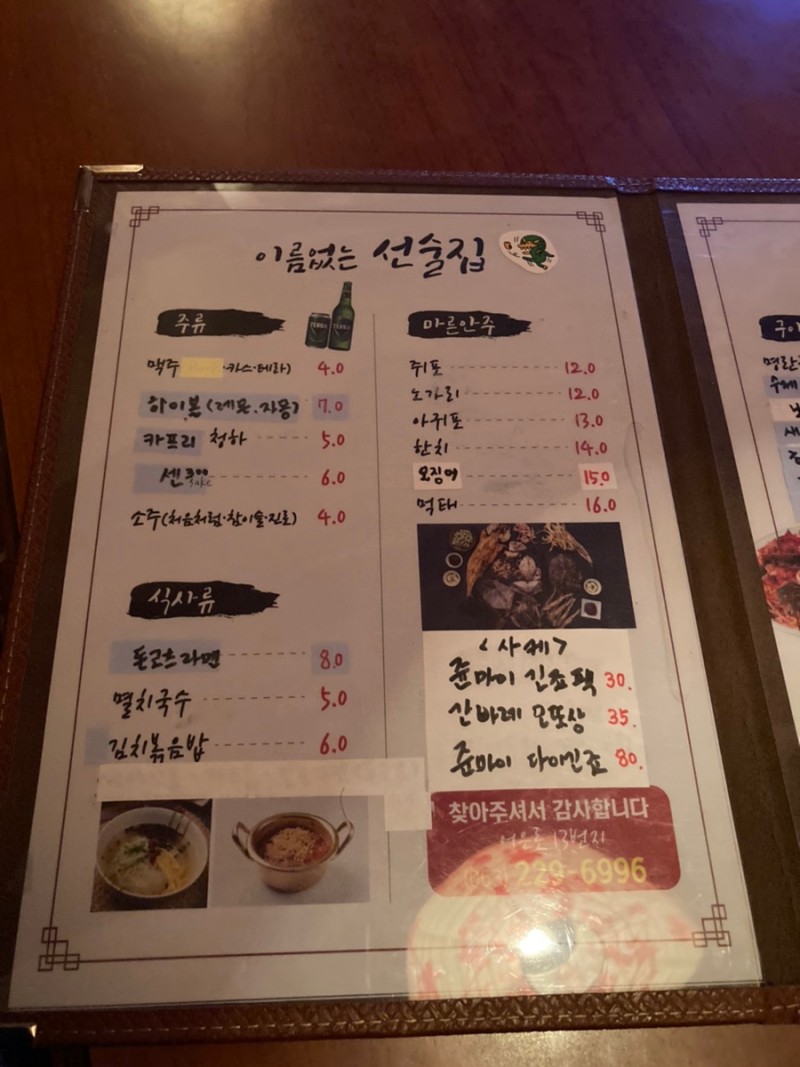 이름없는 선술집
주류
맥주 ·카스·테라) 4.0
하이볼 (레몬.자몽) 7.0
카프리 청하 5.0
6.0
소주(처음처럼·참이슬·진로) 4.0
식사류
돈코츠라멘 8.0
멸치국수 5.0
김치볶음밥 6.0
마른안주
쥐포 12.0
노가리 12.0
아귀포 13.0
한치 14.0
오징어 15.0
먹태 16.0
<사케>
쥰마이 긴죠팩 30.
간바레 오또상 35.
쥰마이 다이긴죠 80.
찾아주셔서 감사합니다
13번지
229-6996
TERRA
구이
명란